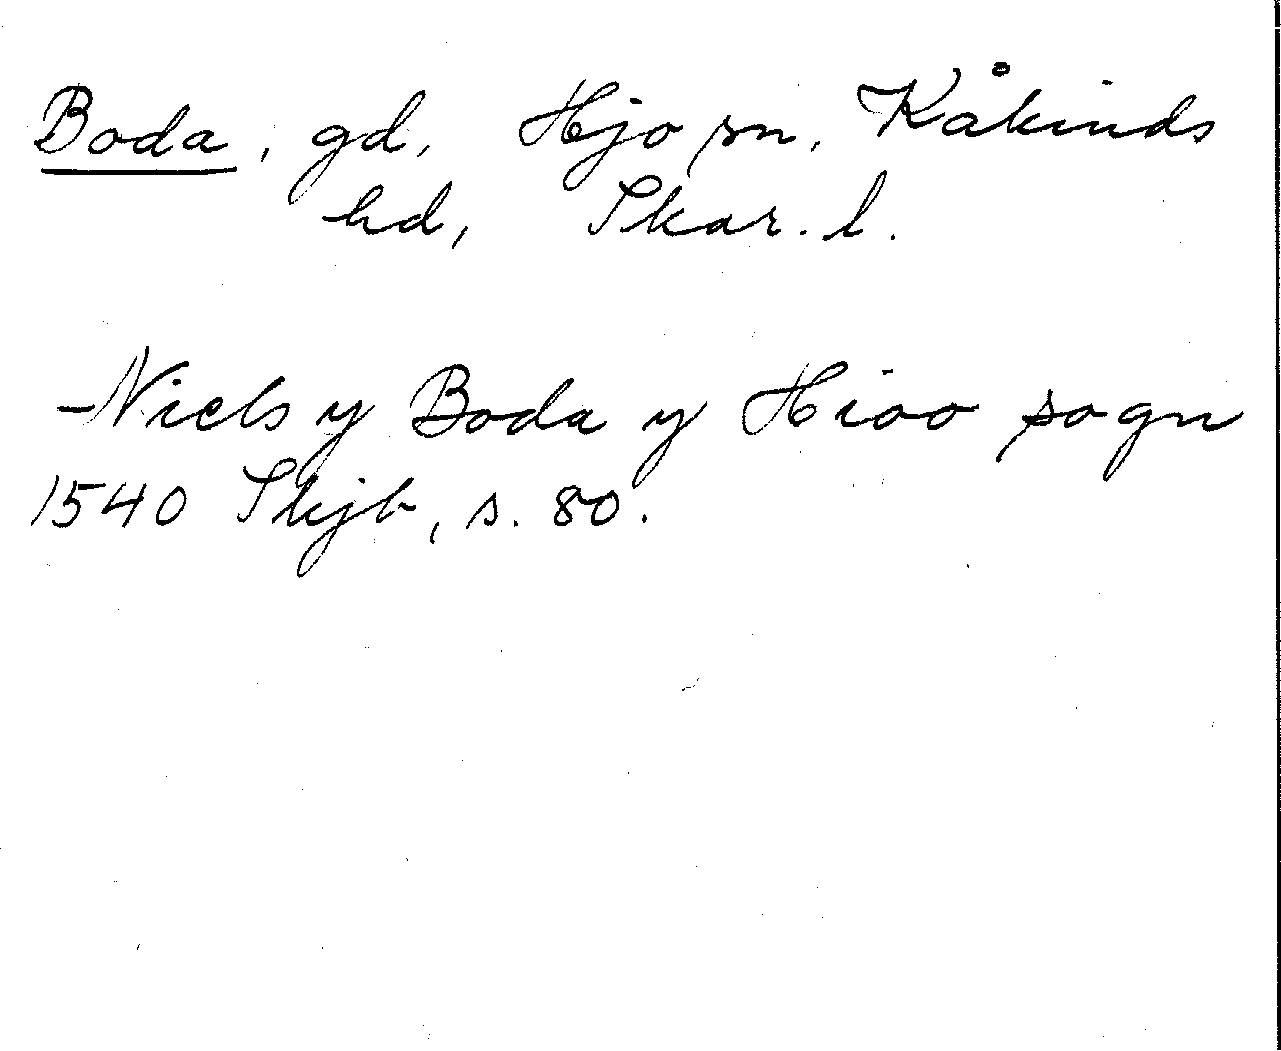 Boda, gd, Hjo sn, Kåkinds
hd, Skar. l.
Niels y Boda y Hioo sogn
1540 Skjb, s. 80.